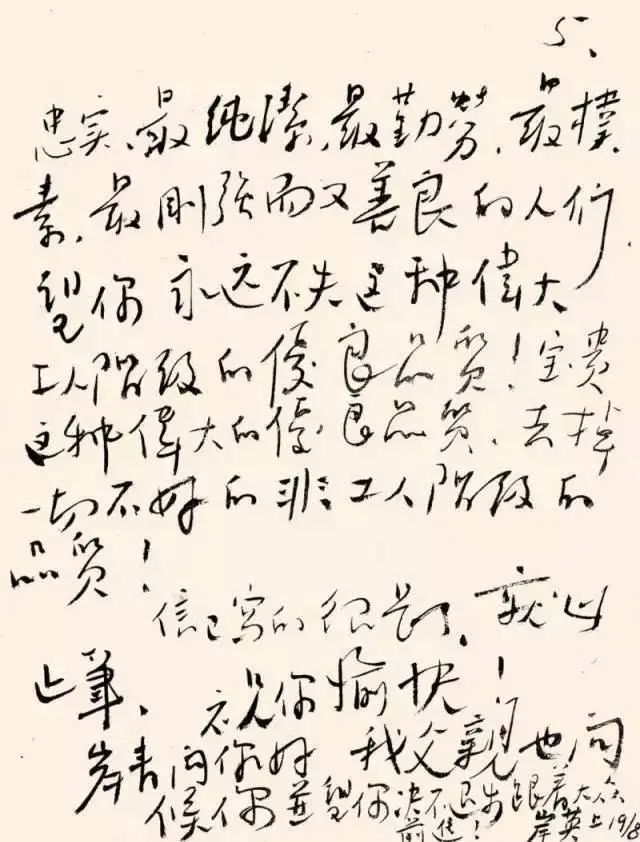 5、
忠实、最纯潔、最勤勞、最樸
素、最刚强而又善良的人们
望你永远不失这种偉大
工人階级的優良品質！宝贵
这种偉大的優良品質、去掉
一切不好的非工人階级的
品質！
信已写的很長了，就此
止筆、祝你愉快！
岸青问你好 我父親也问
候你並望你决不退步跟着大众
前進！岸英上19/8